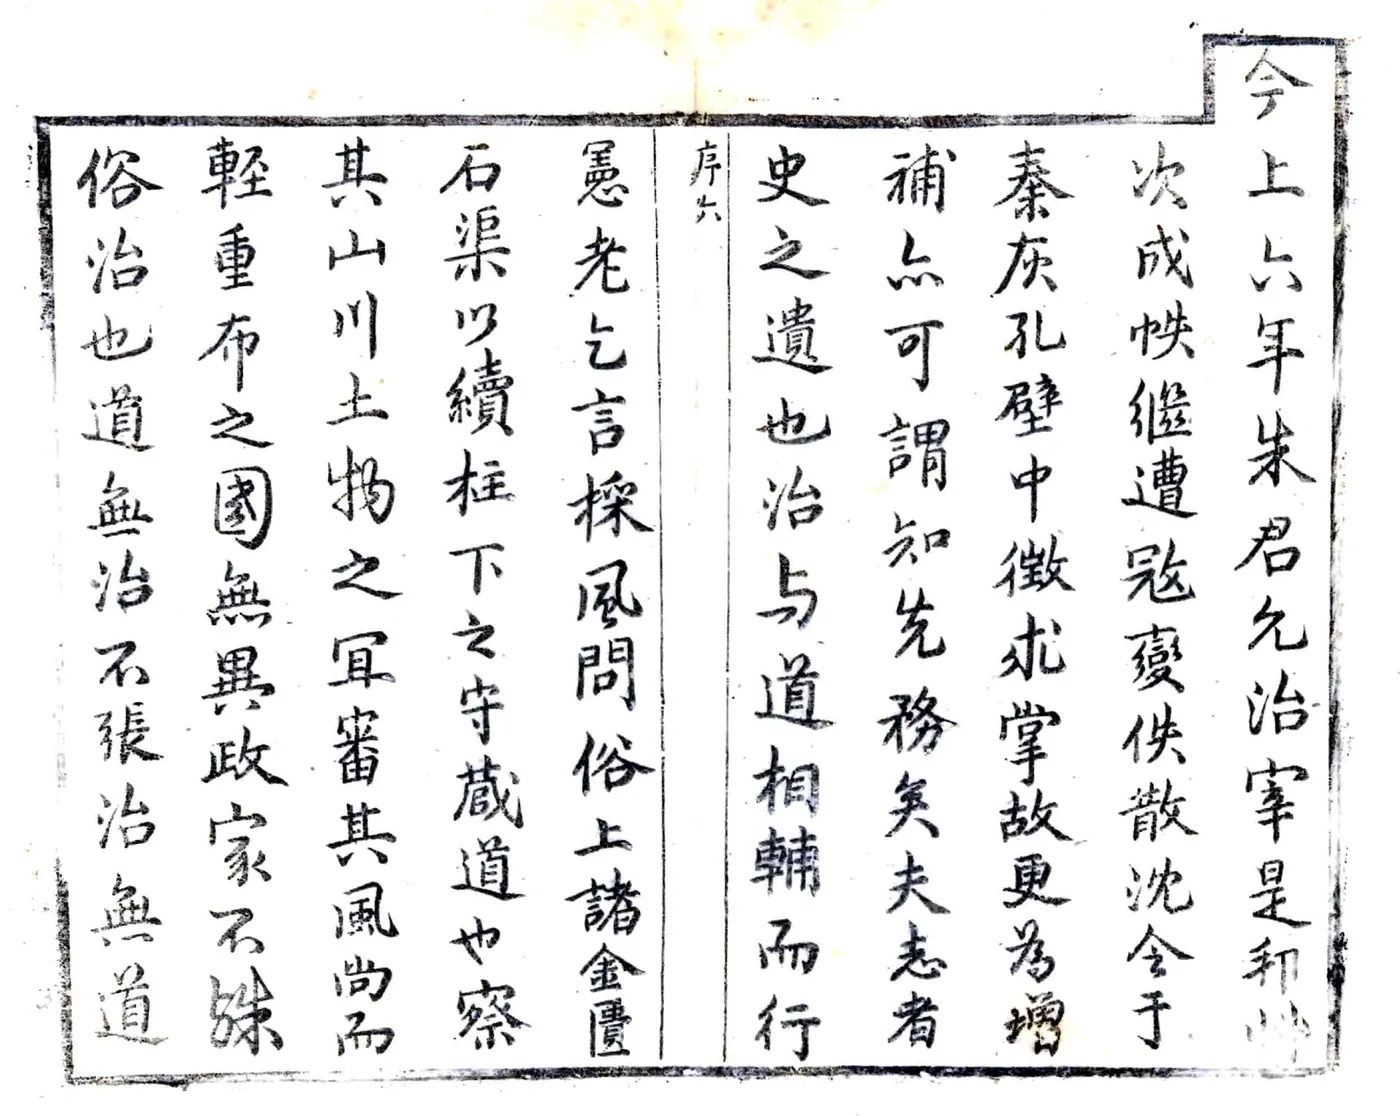 今上六年朱君允治宰是邦艸
次成帙繼遭寇變佚散沈令于
秦灰孔壁中徵求掌故更為增
補亦可謂知先務矣夫志者
史之遺也治与道相輔而行
序六
憲老乞言採風問俗上諸金匱
石渠以續柱下之守蔵道也察
其山川土物之宜審其風尚而
輕重布之國無異政家不殊
俗治也道無治不張治無道